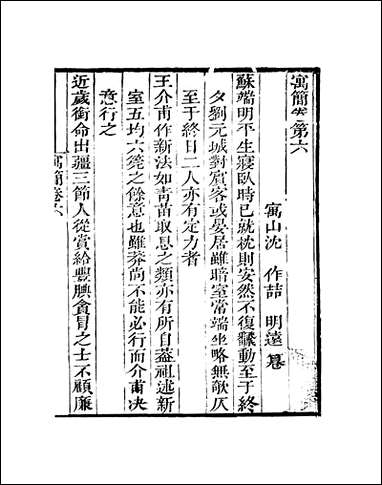 寓簡卷第六
寓山沈 作喆 明遠 纂
蘇端明平生寢臥時已就枕則安然不復飜動至于終
夕劉元城對賓客或晏居雖暗室常端坐略無欹仄
至于終日二人亦有定力者
王介甫作新法如青苗取息之類亦有所自葢祖述新
室五均六筦之餘意也雖莽尚不能必行而介甫决
意行之
近歲銜命出疆三節人從賞給豐腆貪冒之士不顧廉
寓簡卷六